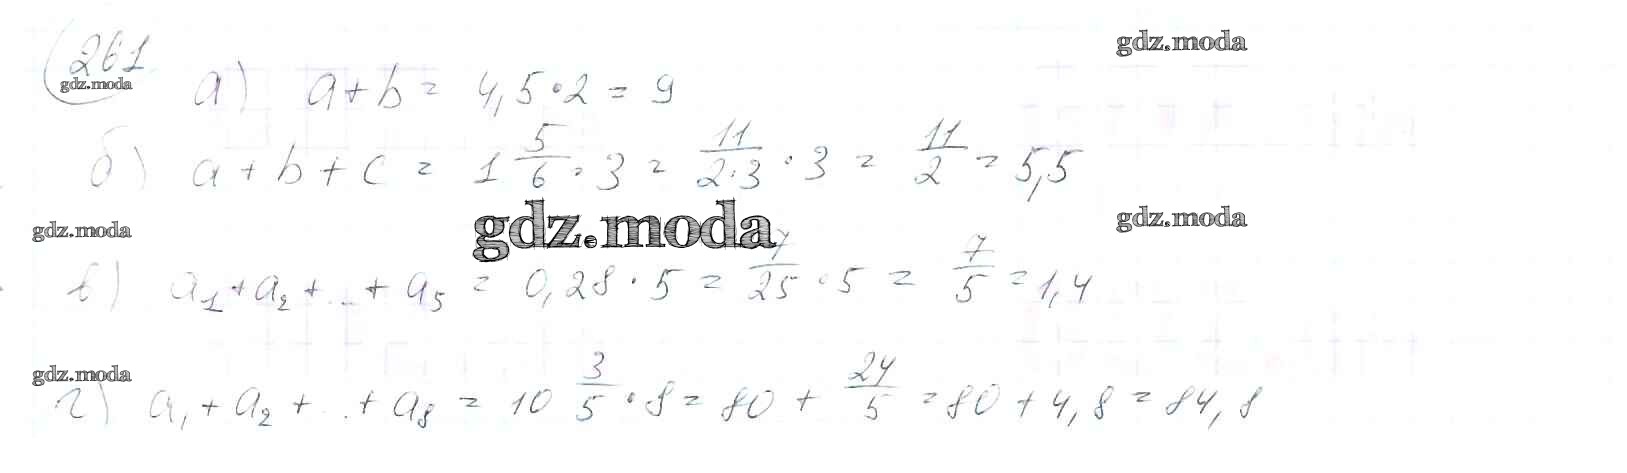 261
gdz.moda
gdz.moda
а) a+b = 4,5·2 = 9
б) a+b+c = 1 5/6 · 3 = 11/2·3 · 3 = 11/2 = 5,5
gdz.moda
gdz.moda
gdz.moda
в) a₁+a₂+...+a₅ = 0,28·5 = 7/25 · 5 = 7/5 = 1,4
gdz.moda
г) a₁+a₂+...+a₈ = 10 3/5 · 8 = 80 + 24/5 = 80+4,8 = 84,8